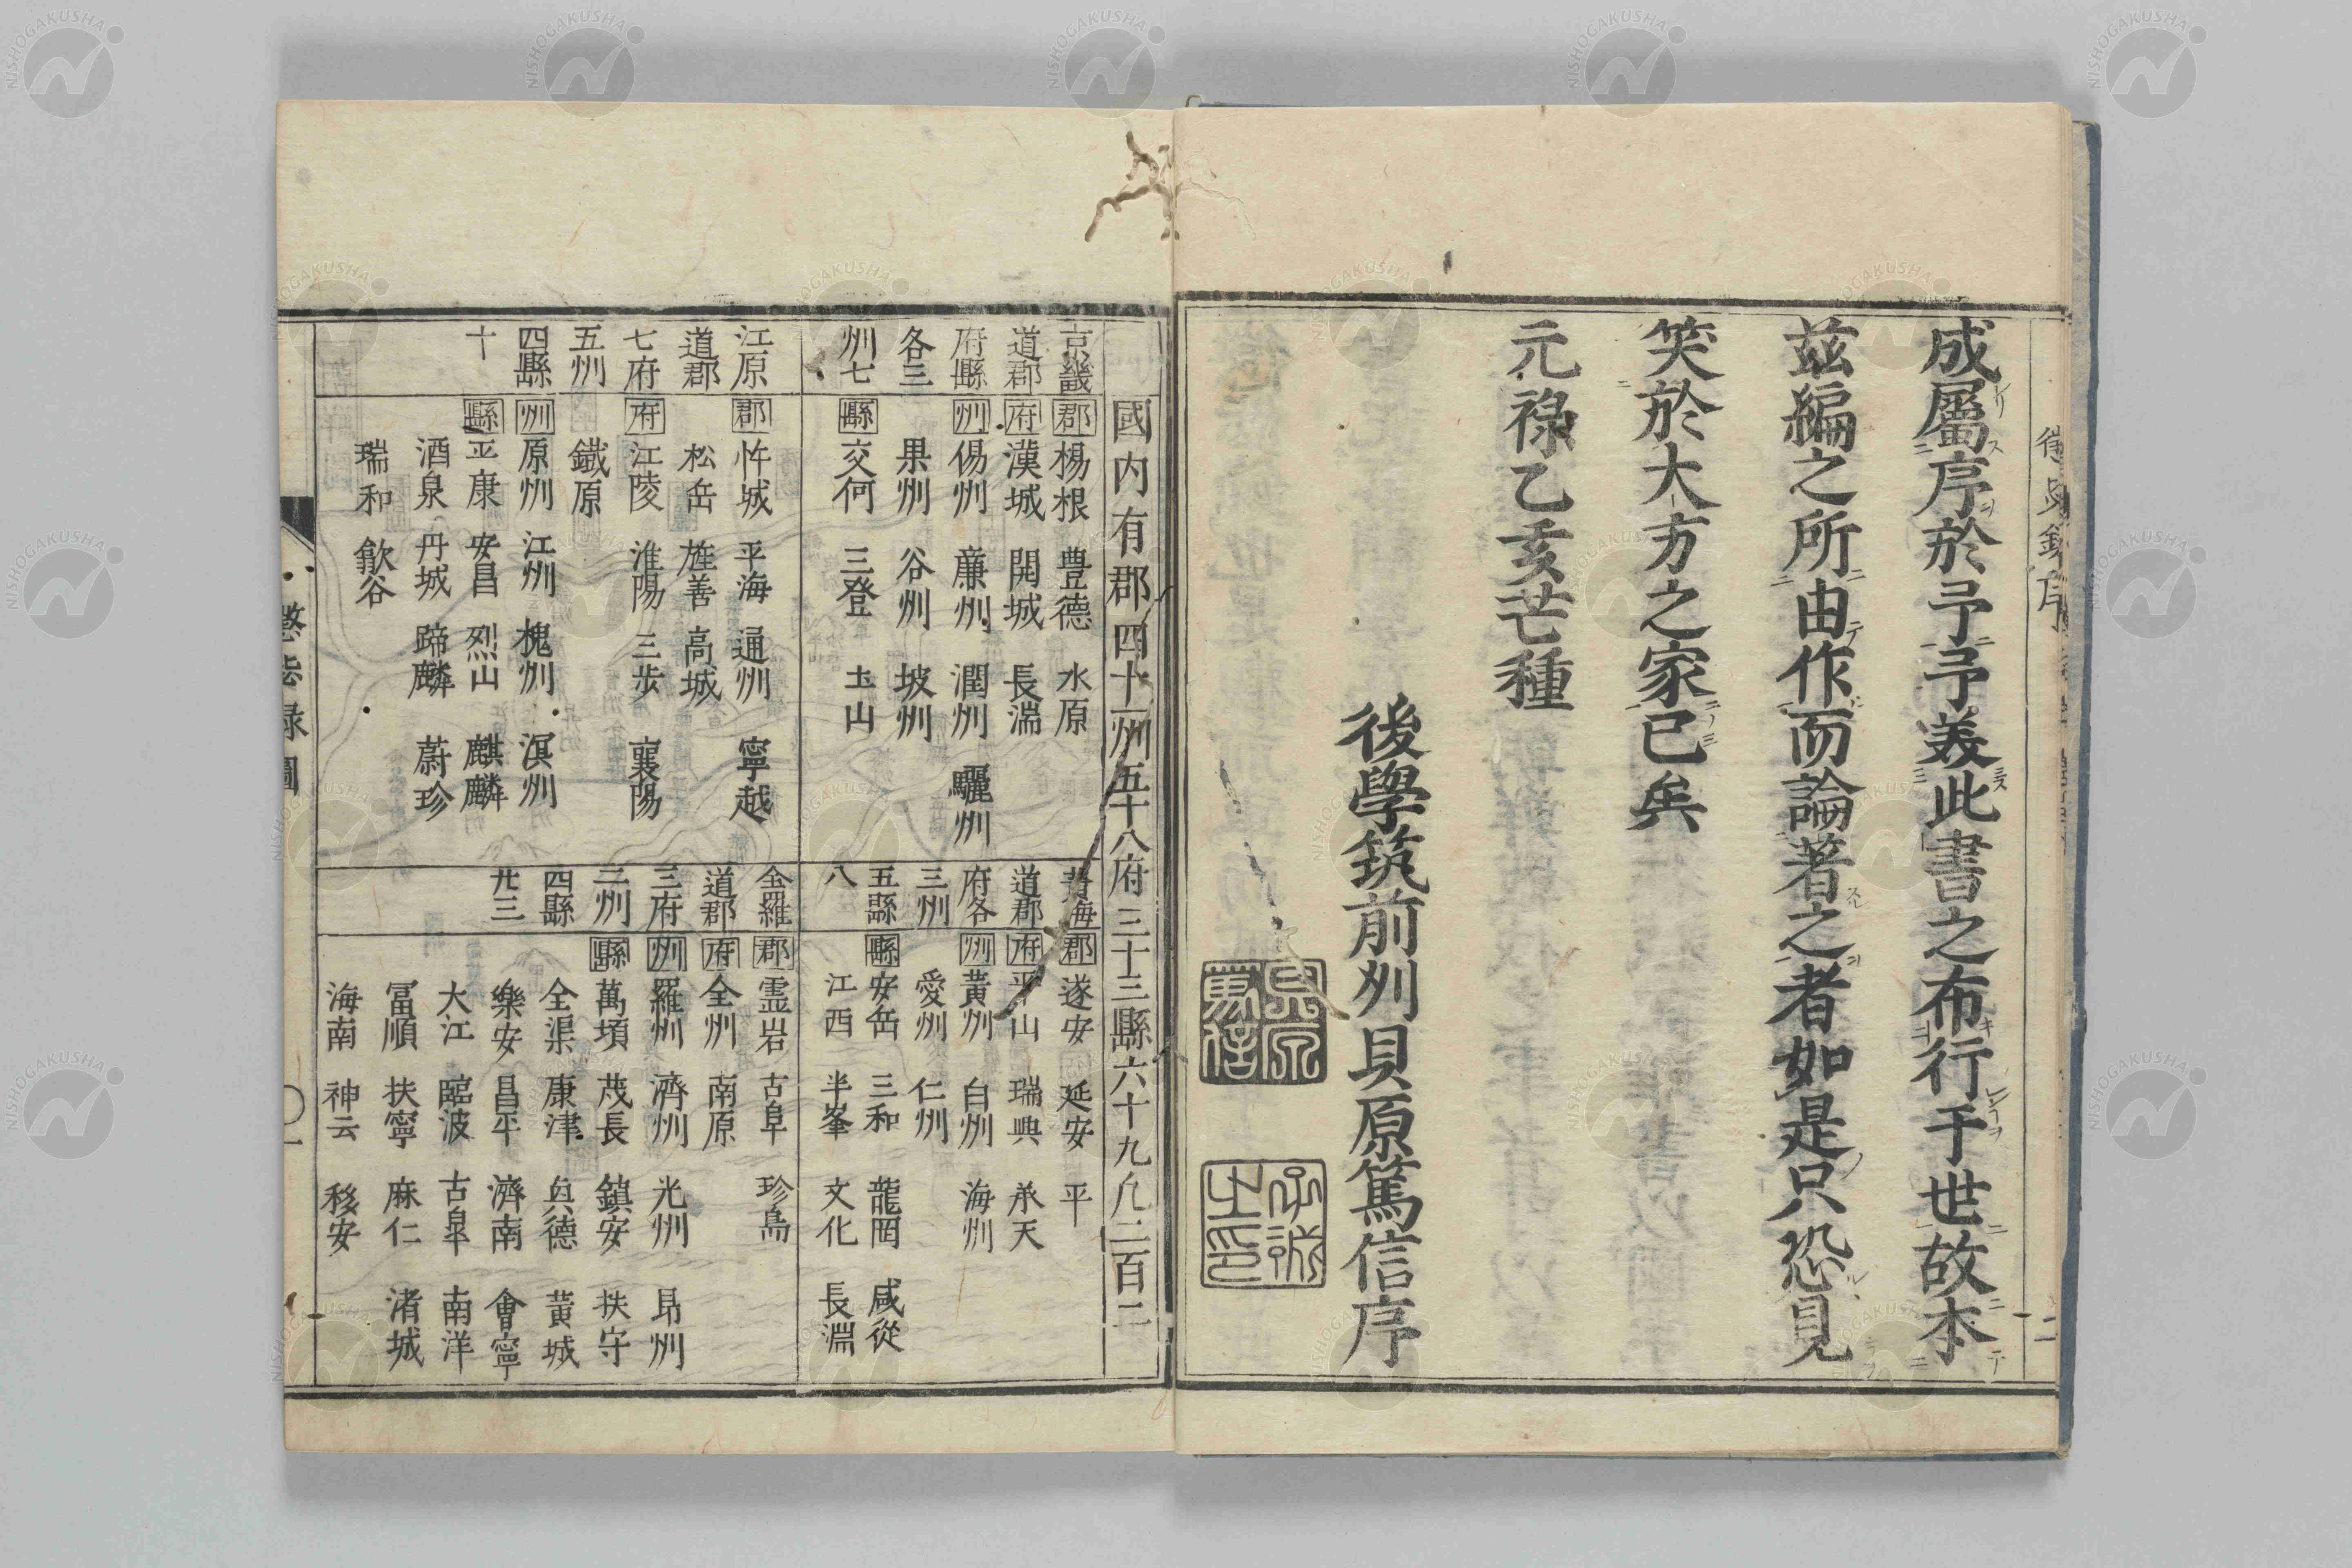 成屬序於予予美此書之布行于世故本
玆編之所由作而論著之者如是只恐見
笑於大方之家已矣
元禄乙亥芒種
後學筑前州貝原篤信序
國内有郡四十一州五十八府三十三縣六十九凡二百二
京畿
道郡
府縣
各三
州七
郡 楊根 豊德 水原
府 漢城 開城 長湍
州 楊州 廉州 潤州 驪州
果州 谷州 坡州
縣 交何 三登 土山
黄海
道郡
府各
三州
五縣
八
郡 遂安 延安 平
府 平山 瑞興 承天
州 黄州 白州 海州
愛州 仁州
縣 安岳 三和 龍罔 咸從
江西 半峯 文化 長淵
江原
道郡
七府
五州
四縣
十
郡 忤城 平海 通州 寧越
松岳 旌善 高城
府 江陵 淮陽 三步 襄陽
鐵原
州 原州 江州 槐州 溟州
縣 平康 安昌 烈山 麒麟
酒泉 丹城 蹄麟 蔚珍
瑞和 歙谷
全羅
道郡
三府
三州
四縣
卅三
郡 霊岩 古阜 珍島
府 全州 南原
州 羅州 濟州 光州 昂州
縣 萬頃 茂長 鎮安 扶守
全渠 康津 興德 黃城
樂安 昌平 濟南 會寧
大江 臨波 古阜 南洋
富順 扶寧 麻仁 渚城
海南 神云 移安
懲毖録 圖
NISHOGAKUSHA